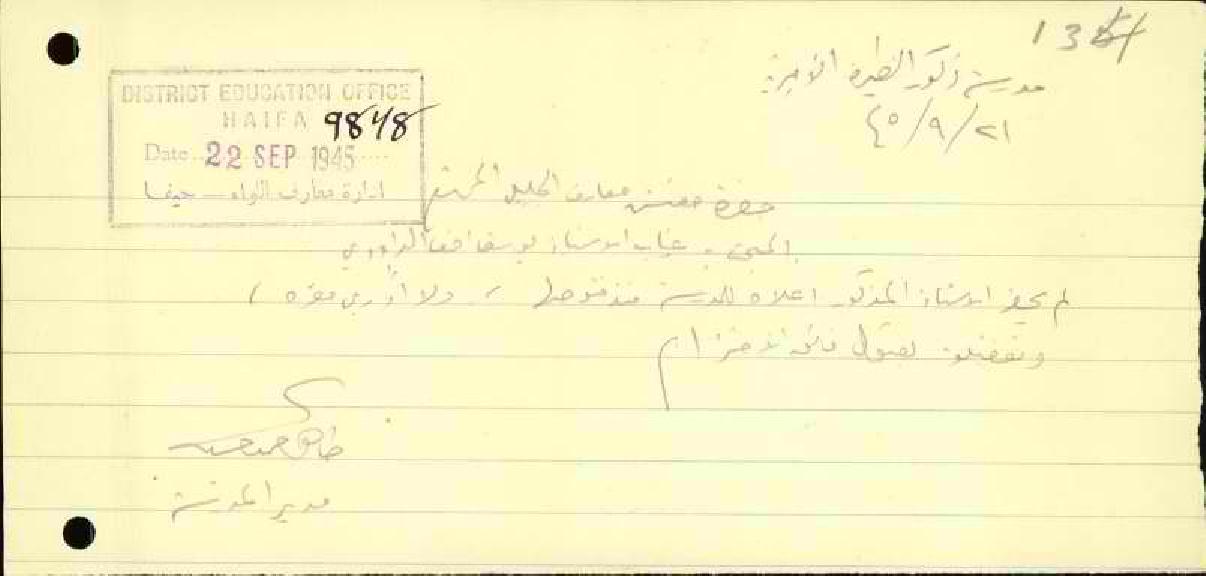 134
مدرسة ذكور الطيرة الأميرية
٢١/٩/٤٥
DISTRICT EDUCATION OFFICE
HAIFA 9848
Date 22 SEP 1945
ادارة معارف اللواء - حيفا
حضرة مفتش معارف الجليل المحترم
غياب الاستاذ يوسف افندي
لم يحضر الاستاذ المذكور اعلاه للمدرسة منذ ولا أدري
وتفضلوا بقبول فائق الاحترام
مدير المدرسة